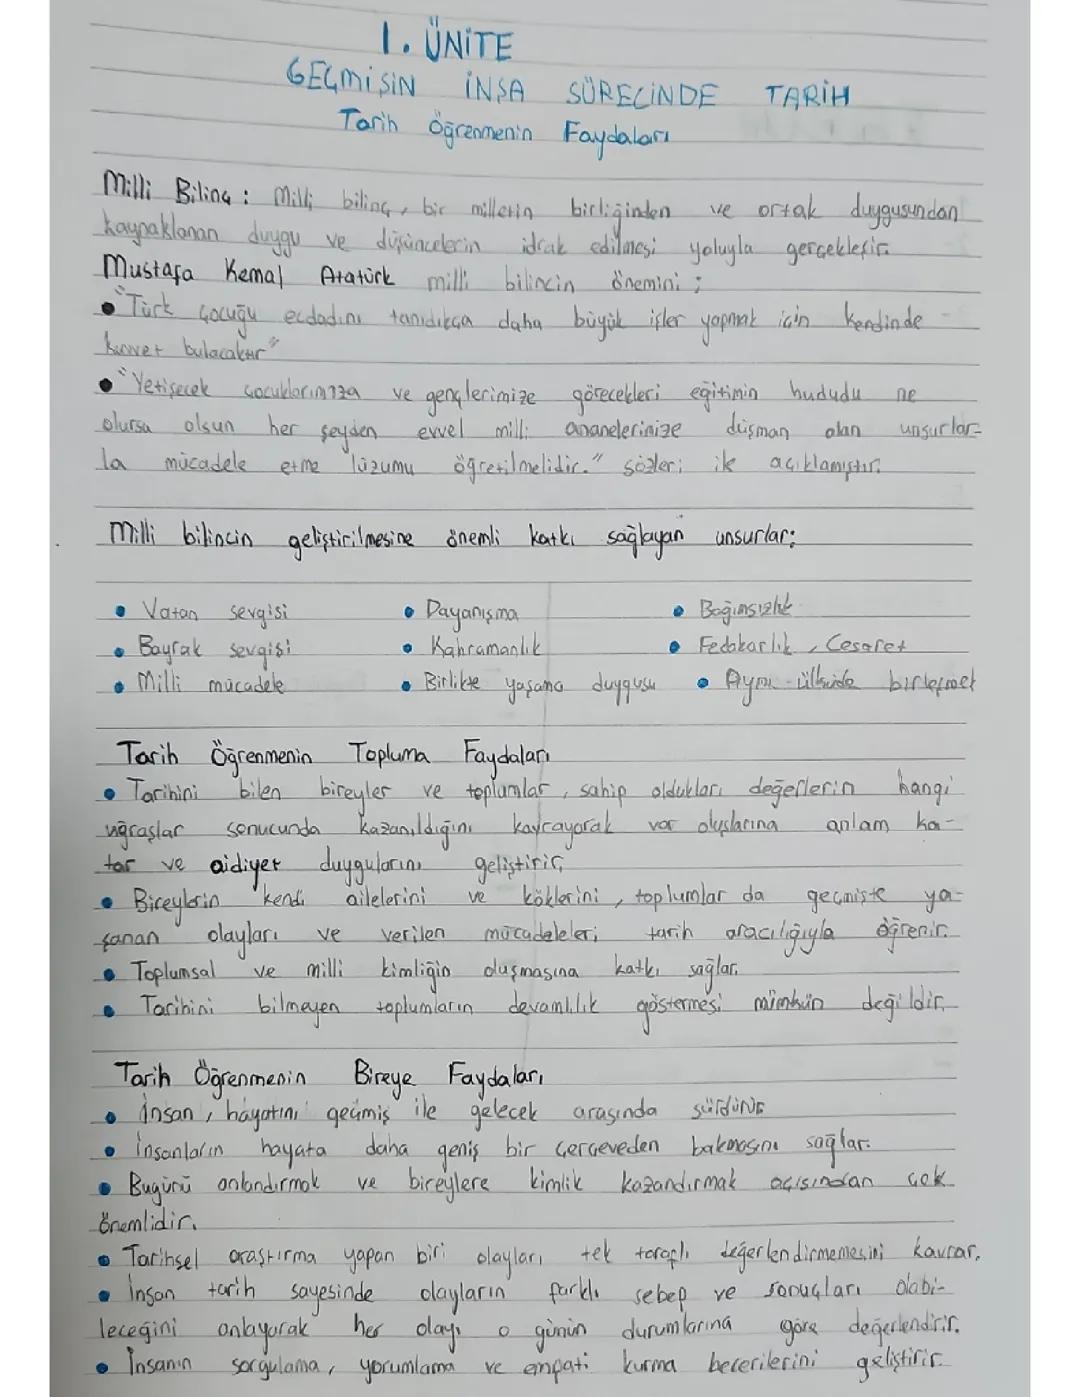 1. ÜNİTE
GEÇMİŞİN İNŞA SÜRECİNDE TARİH
Tarih Öğrenmenin Faydaları
Milli Bilinç : Milli bilinç, bir milletin birliğinden ve ortak duygusundan
kaynaklanan duygu ve düşüncelerin idrak edilmesi yoluyla gerçekleşir.
Mustafa Kemal Atatürk milli bilincin önemini ;
• "Türk çocuğu ecdadını tanıdıkça daha büyük işler yapmak için kendinde
kuvvet bulacaktır"
• "Yetişecek çocuklarımıza ve gençlerimize görecekleri eğitimin hududu ne
olursa olsun her şeyden evvel milli ananelerinize düşman olan unsurlar-
la mücadele etme lüzumu öğretilmelidir." sözleri ile açıklamıştır.
Milli bilincin geliştirilmesine önemli katkı sağlayan unsurlar;
• Vatan sevgisi • Dayanışma • Bağımsızlık
• Bayrak sevgisi • Kahramanlık • Fedakarlık, Cesaret
• Milli mücadele • Birlikte yaşama duygusu • Aynı ülküde birleşmek
Tarih Öğrenmenin Topluma Faydaları
• Tarihini bilen bireyler ve toplumlar, sahip oldukları değerlerin hangi
uğraşlar sonucunda kazanıldığını kavrayarak var oluşlarına anlam ka-
tar ve aidiyet duygularını geliştirir.
• Bireylerin kendi ailelerini ve köklerini, toplumlar da geçmişte ya-
şanan olayları ve verilen mücadeleleri tarih aracılığıyla öğrenir.
• Toplumsal ve milli kimliğin oluşmasına katkı sağlar.
• Tarihini bilmeyen toplumların devamlılık göstermesi mümkün değildir.
Tarih Öğrenmenin Bireye Faydaları
• İnsan, hayatını geçmiş ile gelecek arasında sürdürür
• İnsanların hayata daha geniş bir çerçeveden bakmasını sağlar.
• Bugünü anlandırmak ve bireylere kimlik kazandırmak açısından çok
önemlidir.
• Tarihsel araştırma yapan biri olayları tek taraflı değerlendirmemesini kavrar.
• İnsan tarih sayesinde olayların farklı sebep ve sonuçları olabi-
leceğini anlayarak her olayı o günün durumlarına göre değerlendirir.
• İnsanın sorgulama, yorumlama ve empati kurma becerilerini geliştirir.